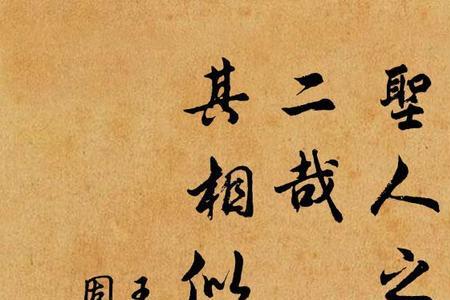 聖人之
二哉
其相似
周子